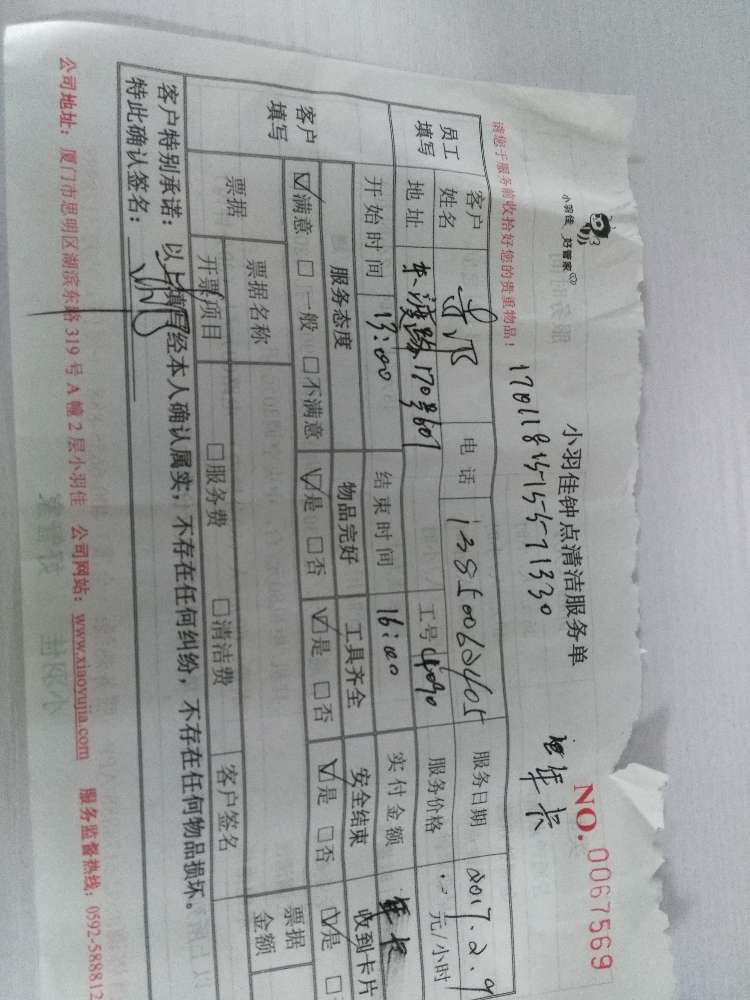 小羽佳 好管家
小羽佳钟点清洁服务单
NO. 0067569
年卡
请您于服务前收拾好您的贵重物品！
员工填写
客户姓名 电话 服务日期 2017.2.9
地址 170号607 工号 4090 服务价格 元/小时
开始时间 13:00 结束时间 16:00 实付金额 年卡
客户填写
服务态度 物品完好 工具齐全 安全结束 收到卡片
☑满意 □一般 □不满意 ☑是 □否 ☑是 □否 ☑是 □否 ☑是 □
票据 票据名称 票据金额
开票项目 □服务费 □清洁费 客户签名
客户特别承诺：以上填写经本人确认属实，不存在任何纠纷，不存在任何物品损坏。
特此确认签名：
公司地址：厦门市思明区湖滨东路319号A幢2层小羽佳 公司网站：www.xiaoyujia.com 服务监督热线：0592-588812